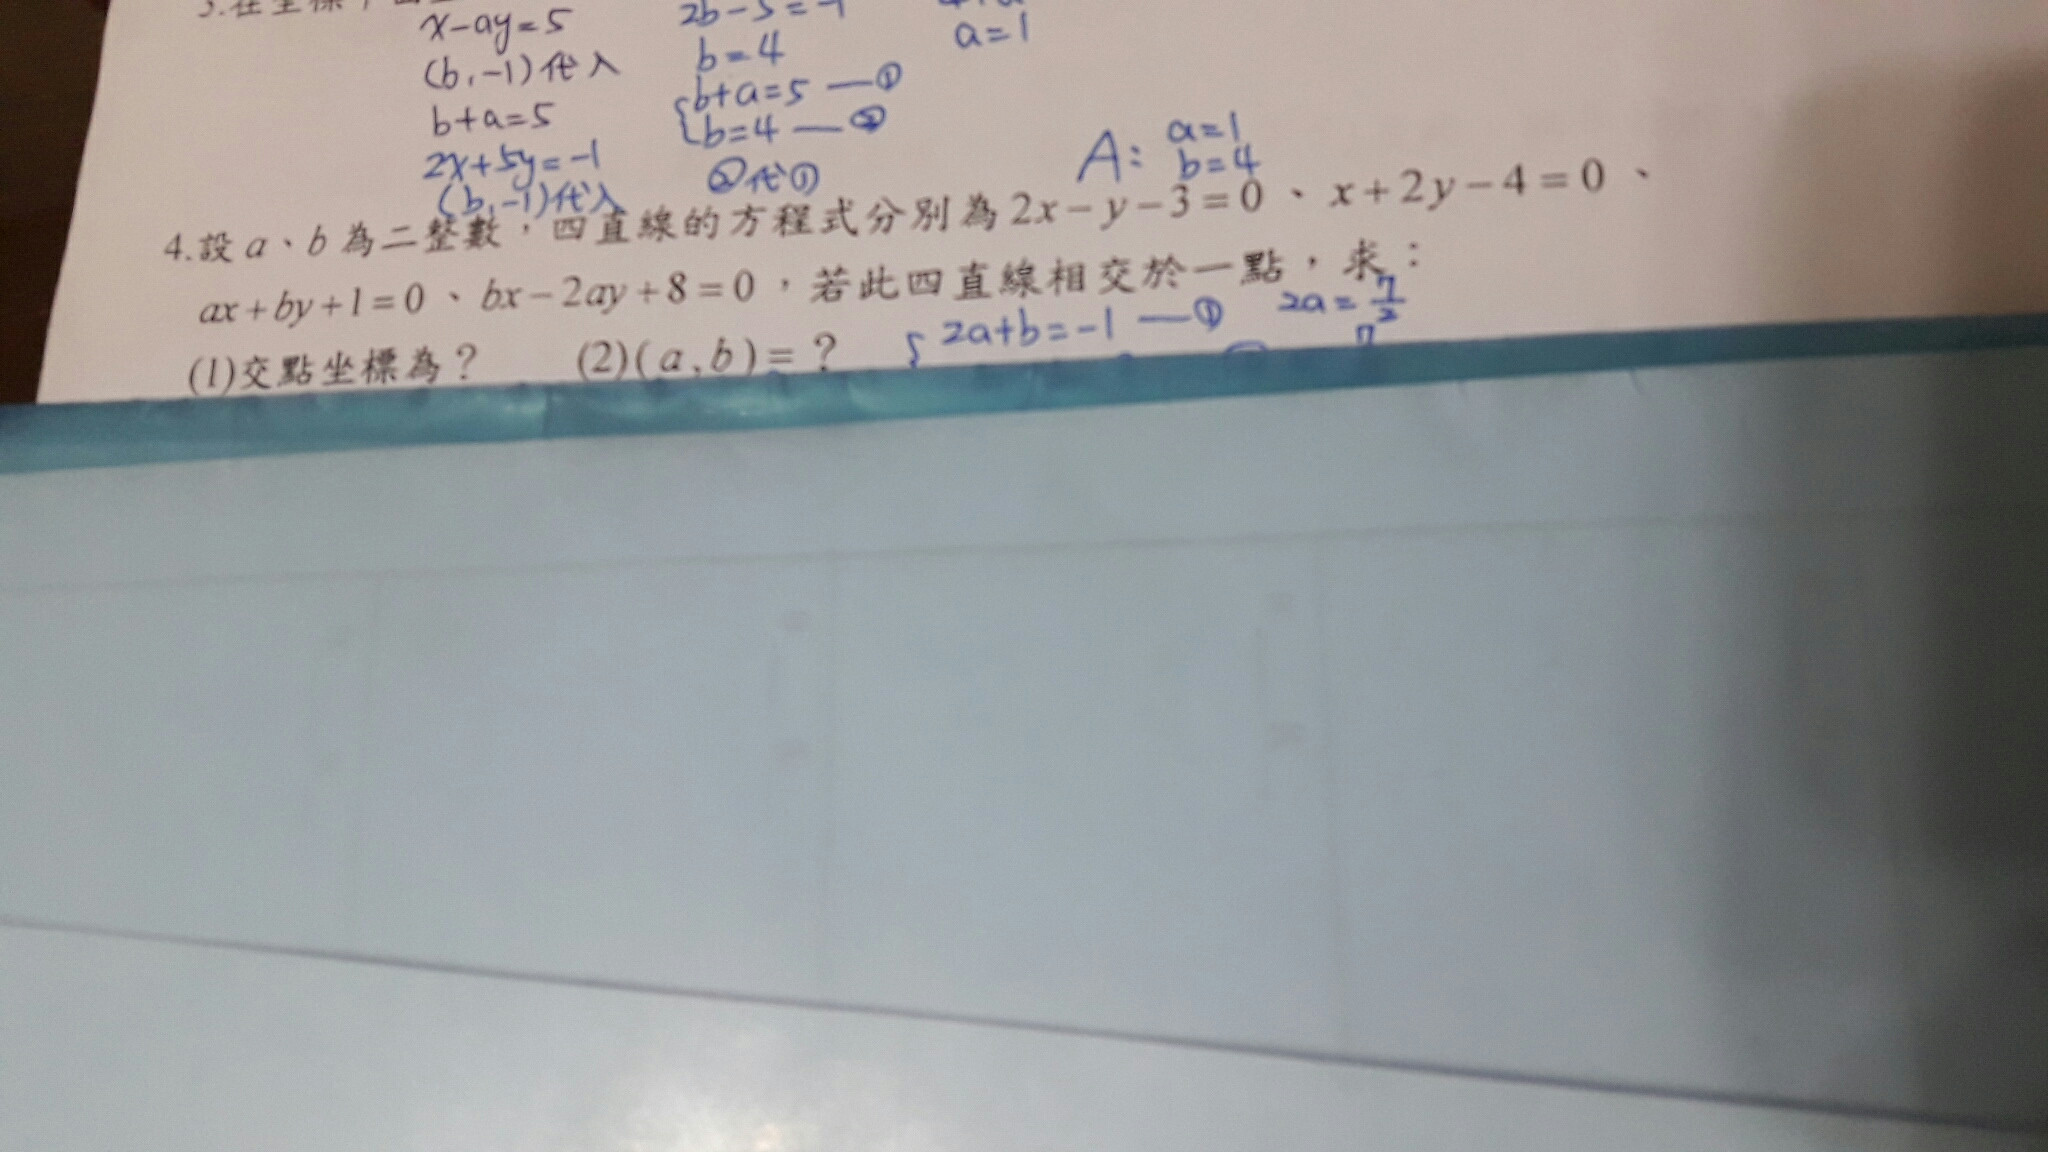 3.在坐標
x-ay=5
(b,-1)代入
b+a=5
2x+5y=-1
(b,-1)代入
2b-5=-1
b=4
b+a=5 —①
b=4 —②
②代①
a=1
A: a=1
b=4
4.設 a、b 為二整數，四直線的方程式分別為 2x-y-3=0、x+2y-4=0、
ax+by+1=0、bx-2ay+8=0，若此四直線相交於一點，求：
(1)交點坐標為？ (2)(a,b)=？
2a+b=-1 —①
2a=7/2
7